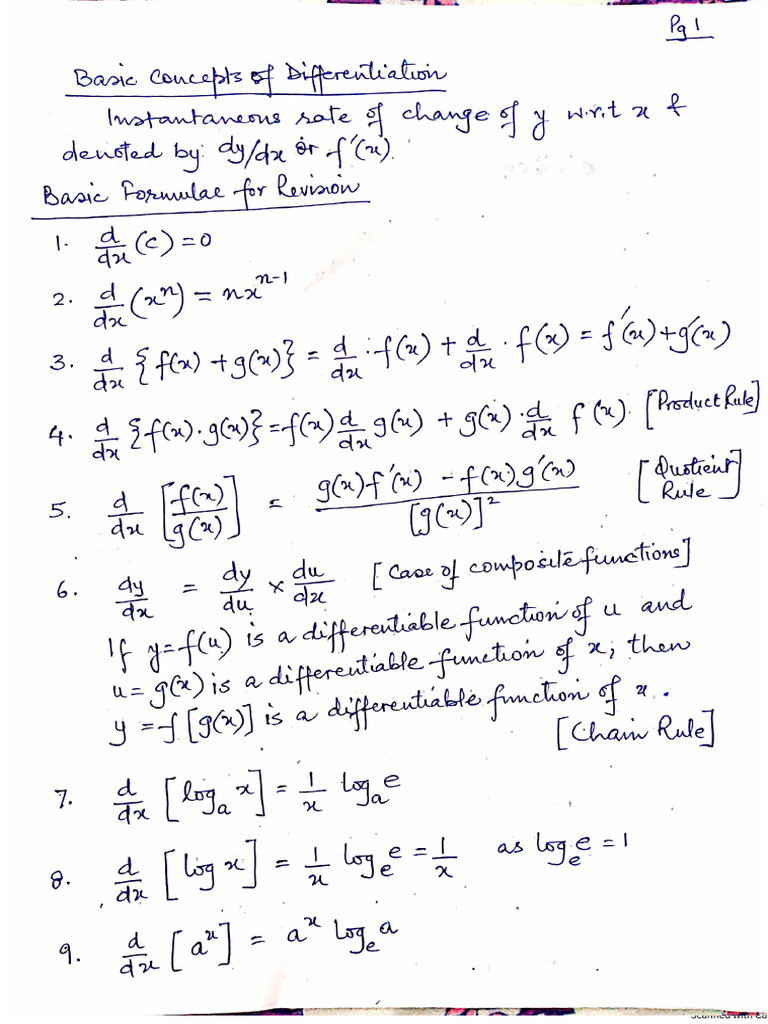 Pg 1
Basic Concepts of Differentiation
Instantaneous rate of change of y w.r.t x &
denoted by: dy/dx or f'(x).
Basic Formulae for Revision
1. d/dx (c) = 0
2. d/dx (xⁿ) = nxⁿ⁻¹
3. d/dx {f(x) + g(x)} = d/dx · f(x) + d/dx · f(x) = f'(x) + g'(x)
4. d/dx {f(x) · g(x)} = f(x) d/dx g(x) + g(x) · d/dx f(x). [Product Rule]
5. d/dx [f(x)/g(x)] = g(x)f'(x) - f(x).g'(x) / [g(x)]² [Quotient Rule]
6. dy/dx = dy/du × du/dx [Case of composite functions]
If y = f(u) is a differentiable function of u and
u = g(x) is a differentiable function of x; then
y = f[g(x)] is a differentiable function of x.
[Chain Rule]
7. d/dx [logₐ x] = 1/x logₐ e
8. d/dx [log x] = 1/x logₑ e = 1/x as logₑ e = 1
9. d/dx [aˣ] = aˣ logₑ a